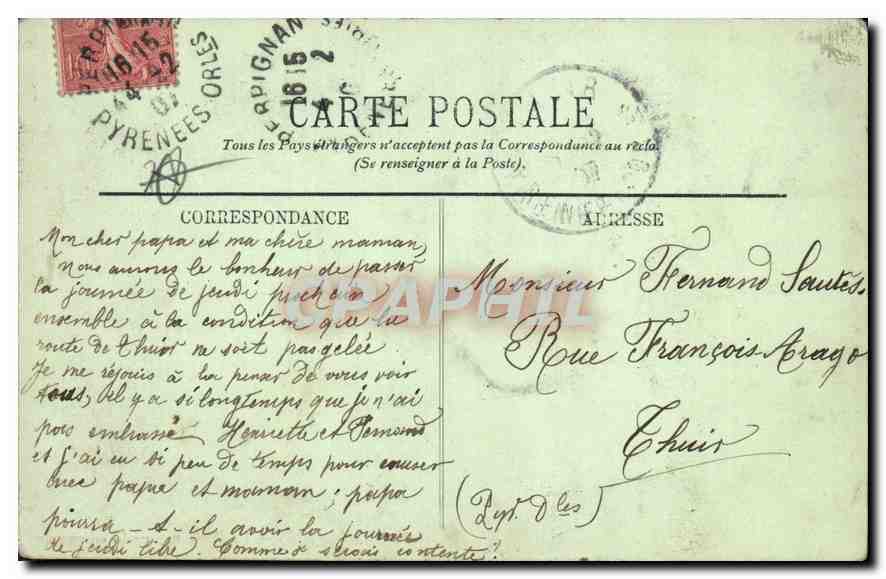 PERPIGNAN
16 15
4 - 2
07
PYRENEES ORLES
PERPIGNAN
16 15
4 2
CARTE POSTALE
Tous les Pays étrangers n'acceptent pas la Correspondance au recto.
(Se renseigner à la Poste).
CORRESPONDANCE
Mon cher papa et ma chère maman,
Nous aurons le bonheur de passer
la journée de jeudi prochain
ensemble à la condition que la
route de Thuir ne soit pas gelée.
Je me réjouis à la penser de vous voir
tous, il y a si longtemps que je n'ai
pas embrassé Henriette et Fernand
et j'ai eu si peu de temps pour causer
avec papa et maman; papa
pourra-t-il avoir la journée
de jeudi libre? Comme je serais contente!
ADRESSE
Monsieur Fernand Sautés.
Rue François Arago
Thuir
(Pyr. Oles)
CPAPHIL